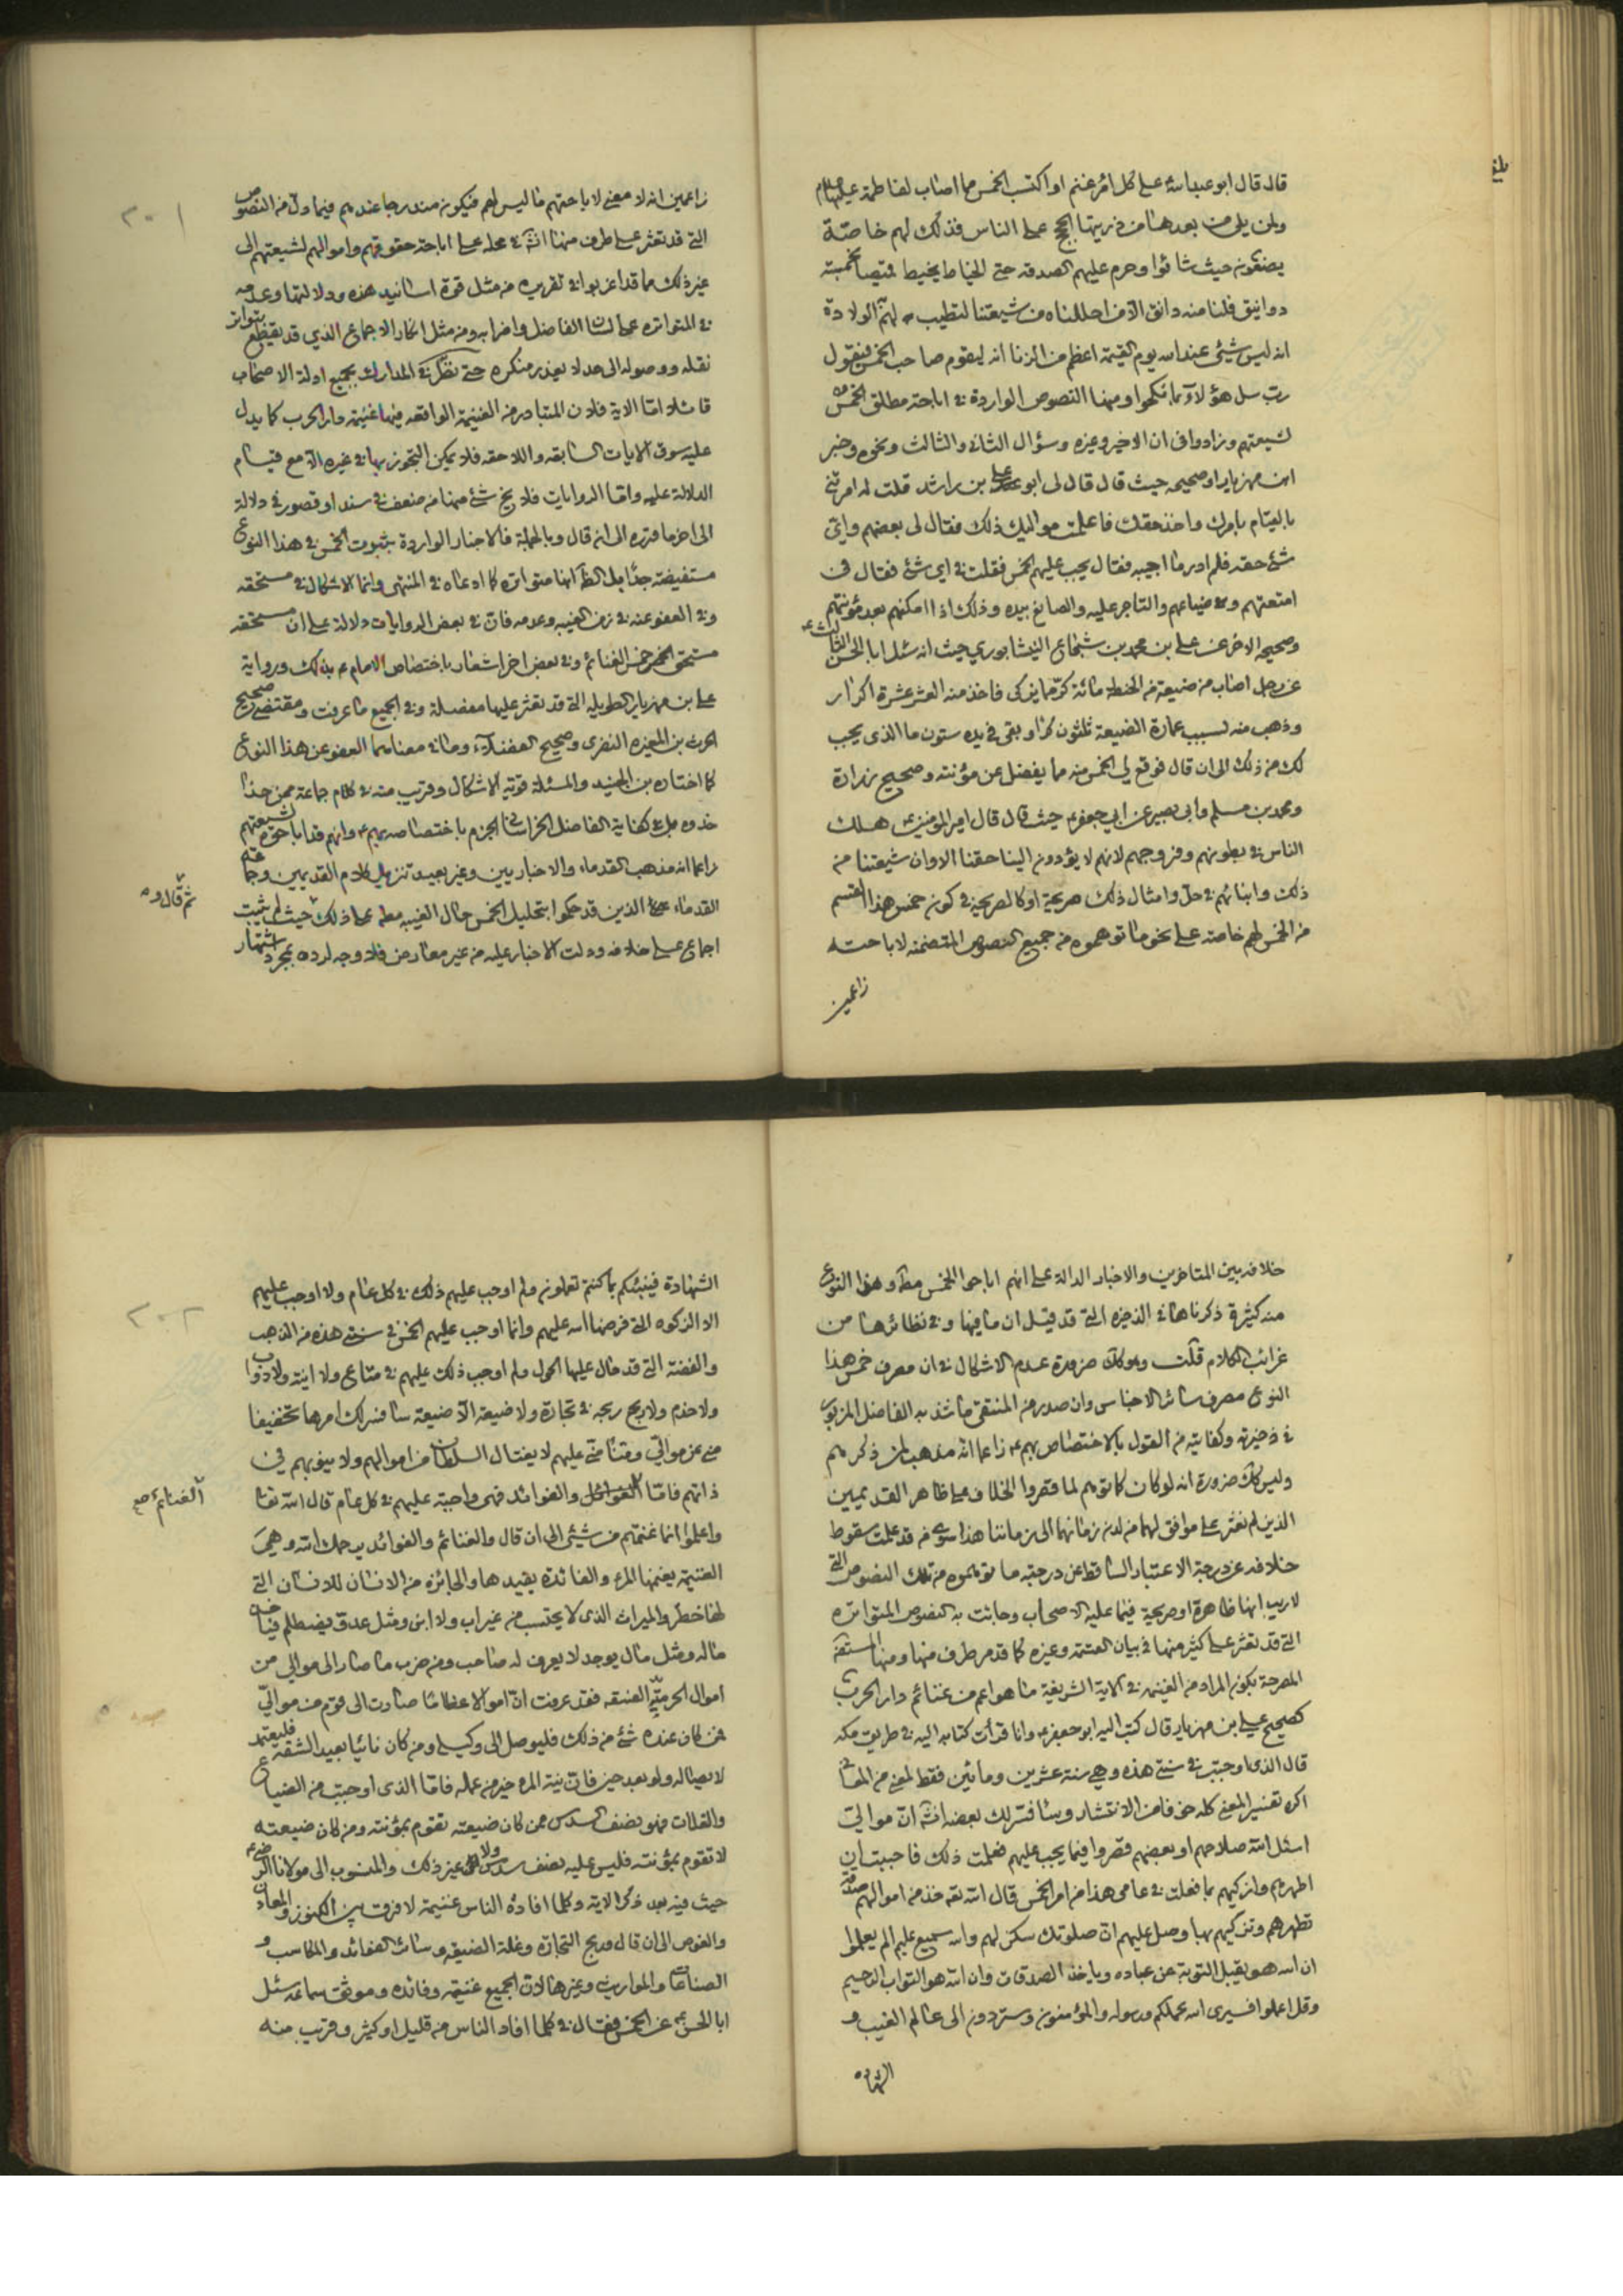 قال قال ابو عبد الله ع على كل امرء غنم او اكتسب الخمس مما اصاب لفاطمة عليها السلام
ولمن يلى من بعدها من ذريتها الحجج على الناس فذلك لهم خاصة
يضعونه حيث شاؤا وحرم عليهم الصدقه حتى الخياط يخيط قميصا بخمسة
دوانيق فلنا منه دانق الا من احللناه من شيعتنا لتطيب لهم الولادة
انه ليس شيئ عند الله يوم القيمة اعظم من الزنا انه ليقوم صاحب الخمس فيقول
رب سل هؤلاء بما نكحوا ومنها النصوص الواردة في اباحة مطلق الخمس
لشيعتهم وزادوا في ان الاخير وغيره وسؤال الثاني والثالث ونحوه وخبر
ابن مهزيار او صحيحه حيث قال قال لى ابو على بن راشد قلت له امرتني
بالقيام بامرك واخذ حقك فاعلمت مواليك ذلك فقال لى بعضهم واي
شئ حقه فلم ادر ما اجيبه فقال يجب عليهم الخمس فقلت في اى شئ فقال في
امتعتهم وضياعهم والتاجر عليه والصانع بيده وذلك اذا امكنهم بعد مؤنتهم
وصحيحه الاخر عن على بن محمد بن شجاع النيشابوري حيث انه سئل ابا الحسن الثالث ع
عن رجل اصاب من ضيعته من الحنطة مائة كر ما يزكى فاخذ منه العشر عشرة اكرار
وذهب منه لسبب عمارة الضيعة ثلثون كرا وبقى في يده ستون ما الذى يجب
لك من ذلك الى ان قال فوقع لي الخمس منه مما يفضل عن مؤنته وصحيح زرارة
ومحمد بن مسلم وابى بصير عن ابي جعفر ع حيث قال قال امير المؤمنين ع هلك
الناس في بطونهم وفروجهم لانهم لا يؤدون الينا حقنا الا وان شيعتنا من
ذلك وابنائهم في حل وامثال ذلك صريحة او كالصريحة في كون خمس هذا القسم
من الخمس لهم خاصه على نحو ما توهموه من جميع النصوص المتضمنه لاباحته
زاعمين
٢٠١
زاعمين انه لا معنى لاباحتهم ما ليس لهم فيكون مندرجا عندهم فيما دل من النصوص
التي قد تعثر على طرف منها انش في محله على اباحة حقوقهم واموالهم لشيعتهم الى
غير ذلك مما قد اغربوا في تقريبه من مثل قوة اسانيد هذه ودلالتها وعدمه
في المتواتره على لسان الفاضل واضرابه ومن مثل انكار الاجماع الذي قد يقطع بتواتر
نقله ووصوله الى حد لا يعذر منكره حتى نظر في المدارك بجميع ادلة الاصحاب
قائلا اما الاية فلان المتبادر من الغنيمة الواقعه فيها غنيمة دار الحرب كما يدل
عليه سوق الايات السابقه واللاحقه فلا يمكن التجوز بها في غيره الا مع قيام
الدلالة عليه واما الروايات فلا يخ شئ منها من ضعف في سند او قصور في دلالة
الى اخر ما قرره الى انه قال وبالجملة فالاخبار الواردة بثبوت الخمس في هذا النوع
مستفيضة جدا بل الظ انها متواتره كما ادعاه في المنتهى وانما الاشكال في مستحقه
وفي العفو عنه في زمن الغيبه وعدمه فان في بعض الروايات دلالة على ان مستحقه
مستحق خمس الغنائم وفي بعض اخر اشعار باختصاص الامام ع بذلك ورواية
على بن مهزيار الطويله التي قد تعثر عليها مفصلة وفي الجميع ما عرفت ومقتضى صحيح
الحرث بن المغيره النضرى وصحيح الفضلاء وما في معناهما العفو عن هذا النوع
كما اختاره بن الجنيد والمسئلة قوية الاشكال وقريب منه في كلام جماعة ممن حذا
حذوه بل في كفاية الفاضل الخراساني الجزم باختصاصه بهم ع وانهم قد اباحوه لشيعتهم
زاعما انه مذهب القدماء والاخباريين وغير بعيد تنزيل كلام القديمين وجماعة
القدماء الذين قد حكموا بتحليل الخمس حال الغيبه مط على ذلك حيث لم يثبت
اجماع على خلافه ودلت الاخبار عليه من غير معارض فلا وجه لرده بمجرد اشتهار
ثم قال و
خلافه بين المتاخرين والاخبار الدالة على انهم اباحوا الخمس مط وهذا النوع
منه كثيرة ذكرناها في الذخيره التي قد قيل ان ما فيها وفي نظائرها من
غرائب الكلام قلت وهو كك ضرورة عدم الاشكال في ان مصرف خمس هذا
النوع مصرف سائر الاخماس وان صدر من المنتقى ما شد به الفاضل المزبور
في ذخيرته وكفايته من القول بالاختصاص بهم ع زاعما انه مذهب من ذكرهم
وليس كك ضرورة انه لو كان كما توهم لما قصروا الخلاف على ظاهر القديمين
الذين لم نعثر على موافق لهما من لدن زمانهما الى زماننا هذا سوى من قد علمت سقوط
خلافه عن درجة الاعتبار الساقط عن درجته ما توهموه من تلك النصوص التي
لا ريب انها ظاهرة او صريحة فيما عليه الاصحاب وجائت به النصوص المتواتره
التي قد تعثر على كثير منها في بيان القسمة وغيره كما قد مر طرف منها ومنها المستفيضة
المصرحة بكون المراد من الغنيمة في الاية الشريفة ما هو اعم من غنائم دار الحرب
كصحيح على بن مهزيار قال كتب اليه ابو جعفر ع وانا قرأت كتابه اليه في طريق مكه
قال الذى اوجبت في سنتى هذه وهي سنة عشرين ومأتين فقط لمعنى من المعاني
اكره تفسير المعنى كله خوفا من الانتشار وسافسر لك بعضه انش ان موالي
اسئل الله صلاحهم او بعضهم قصروا فيما يجب عليهم فعلمت ذلك فاحببت ان
اطهرهم وازكيهم بما فعلت في عامى هذا من امر الخمس قال الله تعه خذ من اموالهم صدقة
تطهرهم وتزكيهم بها وصل عليهم ان صلوتك سكن لهم والله سميع عليم الم يعلموا
ان الله هو يقبل التوبة عن عباده وياخذ الصدقات وان الله هو التواب الرحيم
وقل اعملوا فسيرى الله عملكم ورسوله والمؤمنون وستردون الى عالم الغيب و
الشهاده
٢٠٢
الشهادة فينبئكم بما كنتم تعملون ولم اوجب عليهم ذلك في كل عام ولا اوجب عليهم
الا الزكوه التي فرضها الله عليهم وانما اوجب عليهم الخمس في سنتى هذه من الذهب
والفضة التي قد حال عليها الحول ولم اوجب ذلك عليهم في متاع ولا انية ولا دواب
ولا خدم ولا ربح ربحه في تجارة ولا ضيعة الا ضيعة سافسر لك امرها تخفيفا
مني عن موالي ومنا مني عليهم لما يغتال السلطان من اموالهم ولا ينوبهم في
ذاتهم فاما والفوائد فهي واجبة عليهم في كل عام قال الله تعا
الغنائم صح
واعلموا انما غنمتم من شيئ الى ان قال والغنائم والفوائد يرحمك الله وهي
الغنيمة يغنمها المرء والفائدة يفيدها والجائزه من الانسان للانسان التي
لها خطر والميراث الذى لا يحتسب من غير اب ولا ابن ومثل عدو يصطلم فيؤخذ
ماله ومثل مال يوجد لا يعرف له صاحب ومن ضرب ما صار الى موالي من
اموال الخرمية الفسقه فقد عرفت ان اموالا عظاما صارت الى قوم من موالي
فمن كان عنده شئ من ذلك فليوصل الى وكيلى ومن كان نائيا بعيد الشقة فليتعمد
لايصاله ولو بعد حين فان نية المرء خير من عمله فاما الذى اوجبت من الضياع
والغلات فهو نصف السدس ممن كان ضيعته تقوم بمؤنته ومن كان ضيعته
لا تقوم بمؤنته فليس عليه نصف سدس ولا غير ذلك والمنسوب الى مولانا الرضا ع
حيث فيه بعد ذكر الاية وكلما افاده الناس غنيمة لا فرق بين الكنوز والمعادن
والغوص الى ان قال وربح التجارة وغلة الضيعة وسائر الفوائد والمكاسب و
الصناعات والمواريث وغيرها لان الجميع غنيمة وفائده وموثق سماعه سئل
ابا الحسن ع عن الخمس فقال في كلما افاد الناس من قليل او كثير وقريب منه